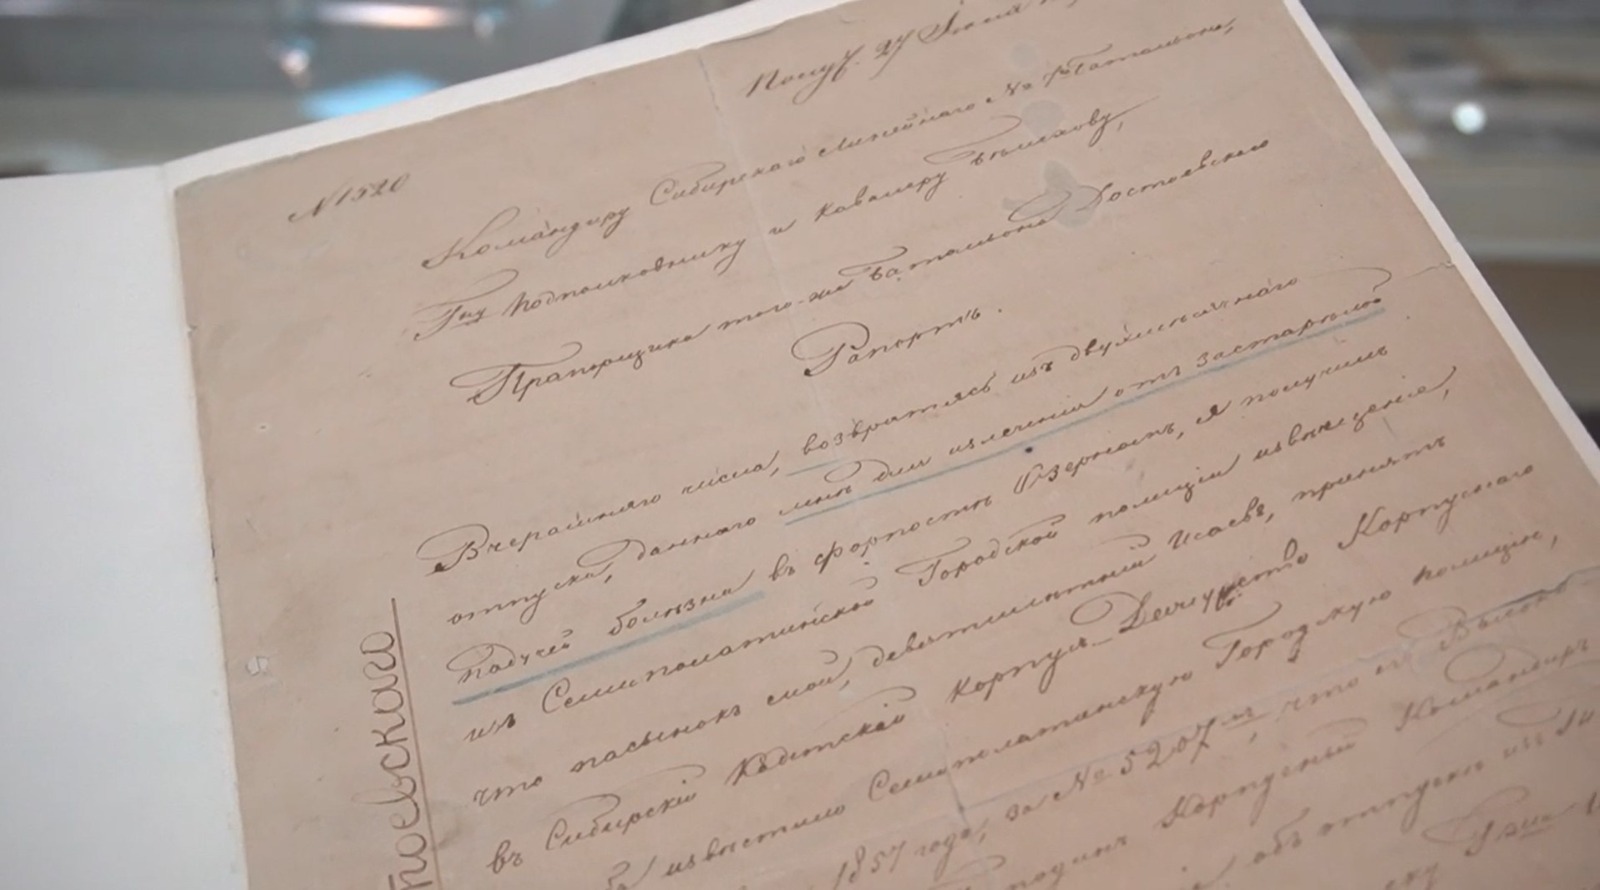 Получ. 27 Июня
№ 1520
Командиру Сибирскаго Линейнаго № Баталіона,
Гну Подполковнику и Кавалеру Бѣлихову,
Прапорщика того-же Баталіона Достоевскаго
Рапортъ.
Вчерашняго числа, возвратясь изъ двухмѣсячнаго
отпуска, даннаго мнѣ для излеченія отъ застарѣлой
падучей болѣзни въ форпостъ Озерномъ, я получилъ
изъ Семипалатинской Городской полиціи извѣщеніе,
что пасынокъ мой, девятилѣтній Исаевъ, принятъ
въ Сибирскій Кадетскій Корпусъ. Дежурство Корпуснаго
извѣстило Семипалатинскую Городскую полицію,
1857 года, за № 5207м, что и Высоко
Корпусный Командиръ
объ отпускѣ изъ
Гдна
тоевскаго